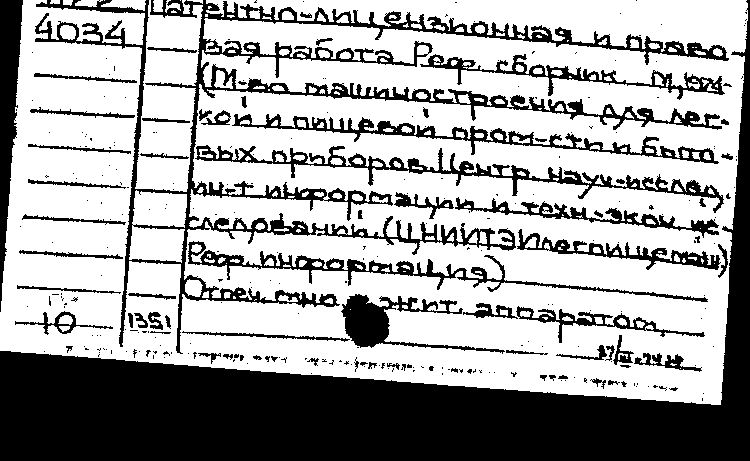 Патентно-лицензионная и право-
4034
вая работа Реф. сборник. М., 1974-
(М-во машиностроения для лег-
кой и пищевой пром-сти и быто-
вых приборов. Центр. науч-исслед.
ин-т информации и техн.-экон. ис-
следований. (ЦНИИТЭИлегпищемаш)
Реф. информация)
Отпеч. множит. аппаратом.
10 1351